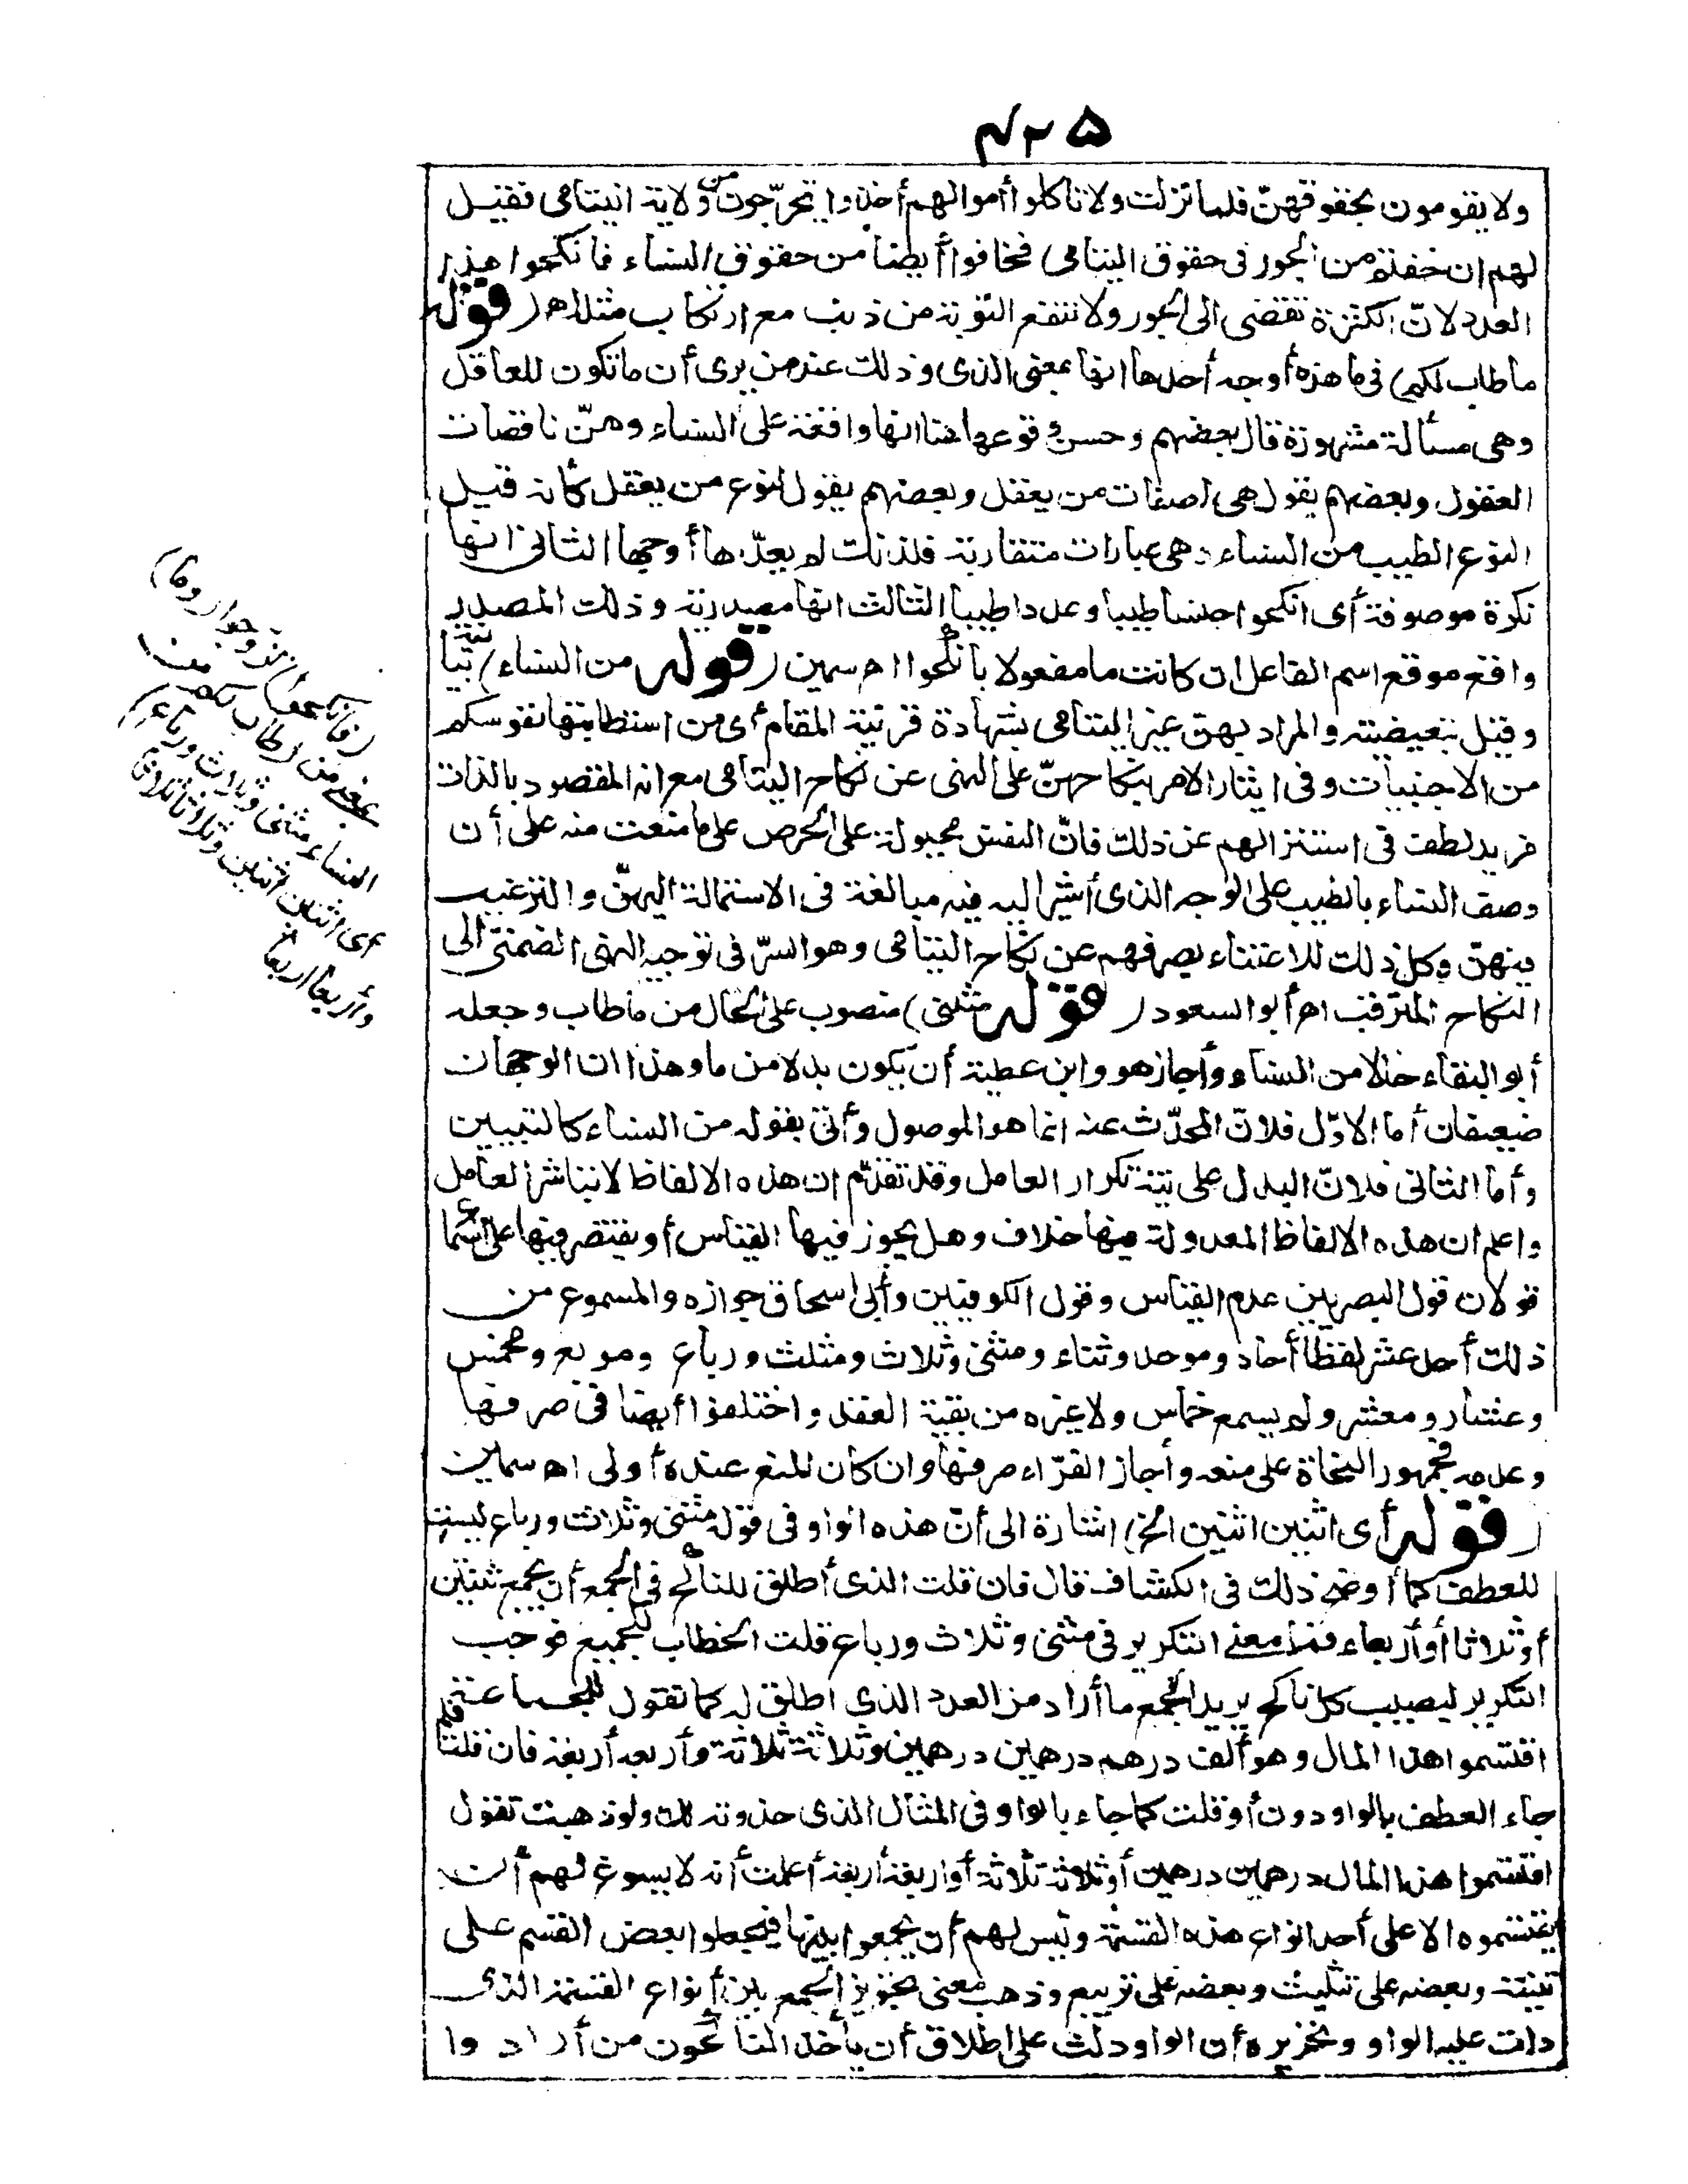 ٤٢٥
ولا يقومون بحقوقهنّ فلما نزلت ولا تأكلوا أموالهم أخذوا يتحرّجون من ولاية اليتامى فقيل
لهم ان خفتم من الجور فى حقوق اليتامى فخافوا أيضا من حقوق النساء فانكحوا هذا
العدد لانّ الكثرة تفضى الى الجور ولا تنفع التوبة من ذنب مع ارتكاب مثله اهـ (قوله
ما طاب لكم) فى ما هذه أوجه أحدها انها بمعنى الذى وذلك عند من يرى أن ما تكون للعاقل
وهى مسألة مشهورة قال بعضهم وحسن وقوعها هنا انها واقعة على النساء وهنّ ناقصات
العقول وبعضهم يقول هى لصفات من يعقل وبعضهم يقول لنوع من يعقل كأنه قيل
النوع الطيب من النساء وهى عبارات متقاربة فلذلك لم يعدّها أوجها الثانى انها
نكرة موصوفة أى انكحوا جنسا طيبا وعددا طيبا الثالث انها مصدرية وذلك المصدر
واقع موقع اسم الفاعل ان كانت ما مفعولا بانكحوا اهـ سمين (قوله من النساء) بيانية
وقيل تبعيضية والمراد بهن غير اليتامى بشهادة قرينة المقام أى من استطابتها نفوسكم
من الاجنبيات وفى ايثار الامر بنكاحهنّ على النهى عن نكاح اليتامى مع انه المقصود بالذات
مزيد لطف فى استنزالهم عن ذلك فانّ النفس مجبولة على الحرص على ما منعت منه على أن
وصف النساء بالطيب على الوجه الذى أشير اليه فيه مبالغة فى الاستمالة اليهنّ والترغيب
فيهنّ وكل ذلك للاعتناء بصرفهم عن نكاح اليتامى وهو السرّ فى توجيه النهى الضمنىّ الى
النكاح المترقب اهـ أبو السعود (قوله مثنى) منصوب على الحال من ما طاب وجعله
أبو البقاء حالا من النساء وأجاز هو وابن عطية أن يكون بدلا من ما وهذان الوجهان
ضعيفان أما الاوّل فلانّ المحدّث عنه انما هو الموصول وأتى بقوله من النساء كالتبيين
وأما الثانى فلانّ البدل على نية تكرار العامل وقد تقدّم ان هذه الالفاظ لا تباشر العامل
واعلم ان هذه الالفاظ المعدولة فيها خلاف وهل يجوز فيها القياس أو يقتصر فيها على السماع
قولان قول البصريين عدم القياس وقول الكوفيين وأبى اسحاق جوازه والمسموع من
ذلك أحد عشر لفظا أحاد وموحد وثناء ومثنى وثلاث ومثلث ورباع ومربع ومخمس
وعشار ومعشر ولم يسمع خماس ولا غيره من بقية العقد واختلفوا أيضا فى صرفها
وعدمه فجمهور النحاة على منعه وأجاز الفرّاء صرفها وان كان المنع عنده أولى اهـ سمين
(قوله أى اثنين اثنين الخ) اشارة الى أنّ هذه الواو فى قوله مثنى وثلاث ورباع ليست
للعطف كما أوضح ذلك فى الكشاف قال فان قلت الذى أطلق للناكح فى الجمع أن يجمع ثنتين
أو ثلاثا أو أربعاء فما معنى التكرير فى مثنى وثلاث ورباع قلت الخطاب للجميع فوجب
التكرير ليصيب كل ناكح يريد الجمع ما أراد من العدد الذى اطلق له كما تقول للجماعة
اقتسموا هذا المال وهو ألف درهم درهمين درهمين وثلاثة ثلاثة وأربعة أربعة فان قلت فلم
جاء العطف بالواو دون أو قلت كما جاء بالواو فى المثال الذى حذوته لك ولو ذهبت تقول
اقتسموا هذا المال درهمين درهمين أو ثلاثة ثلاثة أو اربعة أربعة أعلمت أنه لا يسوغ لهم أن
يقتسموه الا على أحد انواع هذه القسمة وليس لهم أن يجمعوا بينها فيجعلوا بعض القسم على
تثنية وبعضه على تثليث وبعضه على تربيع وذهب معنى تجويز الجمع بين أنواع القسمة الذى
دلت عليه الواو وتحريره أن الواو دلت على اطلاق أن يأخذ الناكحون من أرادوا
(فانكحوا) تزوّجوا (ما)
بمعنى من (طاب لكم من
النساء مثنى وثلاث ورباع)
أى اثنين اثنين وثلاثا ثلاثا
وأربعا أربعا